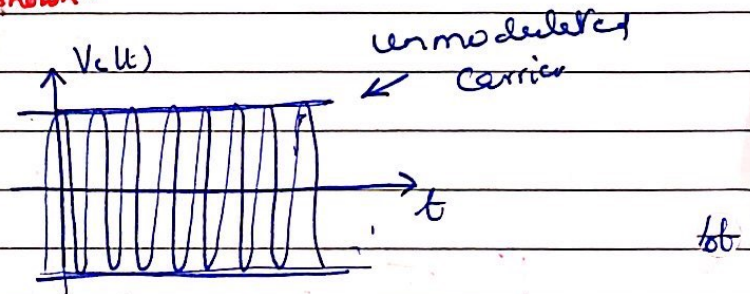 Vc(t)
unmodulated
carrier
t